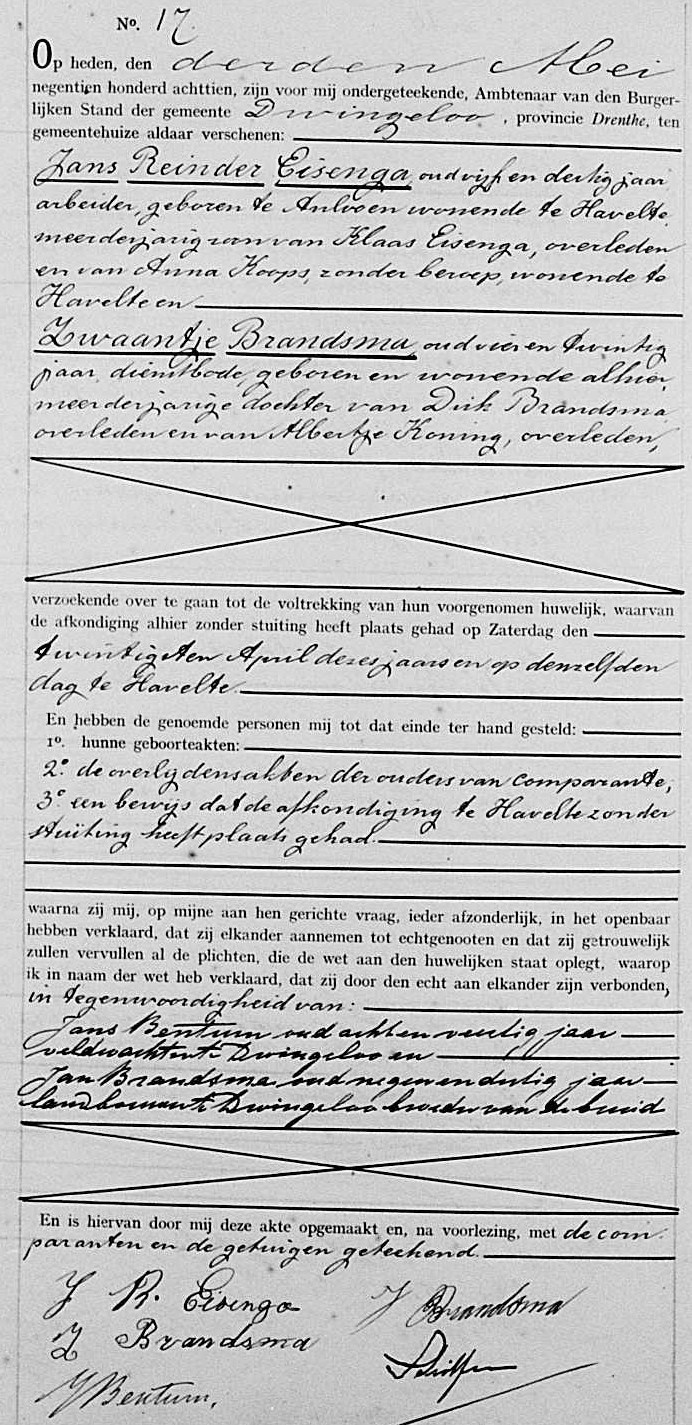 No. 17
Op heden, den derden Mei
negentien honderd achttien, zijn voor mij ondergeteekende, Ambtenaar van den Burger-
lijken Stand der gemeente Dwingeloo, provincie Drenthe, ten
gemeentehuize aldaar verschenen:
Jans Reinder Eisenga, oud vijf en dertig jaar
arbeider, geboren te Anloo en wonende te Havelte,
meerderjarig zoon van Klaas Eisenga, overleden
en van Anna Koops, zonder beroep, wonende te
Havelte en
Zwaantje Brandsma, oud vier en twintig
jaar, dienstbode, geboren en wonende alhier,
meerderjarige dochter van Dirk Brandsma,
overleden en van Albertje Koning, overleden,
verzoekende over te gaan tot de voltrekking van hun voorgenomen huwelijk, waarvan
de afkondiging alhier zonder stuiting heeft plaats gehad op Zaterdag den
twintigsten April dezes jaars en op denzelfden
dag te Havelte.
En hebben de genoemde personen mij tot dat einde ter hand gesteld:
1o. hunne geboorteakten:
2o. de overlydensakten der ouders van comparante;
3o. een bewijs dat de afkondiging te Havelte zonder
stuiting heeft plaats gehad.
waarna zij mij, op mijne aan hen gerichte vraag, ieder afzonderlijk, in het openbaar
hebben verklaard, dat zij elkander aannemen tot echtgenooten en dat zij getrouwelijk
zullen vervullen al de plichten, die de wet aan den huwelijken staat oplegt, waarop
ik in naam der wet heb verklaard, dat zij door den echt aan elkander zijn verbonden,
in tegenwoordigheid van:
Jans Bentum oud acht en veertig jaar
veldwachter te Dwingeloo en
Jan Brandsma oud negen en dertig jaar
landbouwer te Dwingeloo broeder van de bruid
En is hiervan door mij deze akte opgemaakt en, na voorlezing, met de com-
paranten en de getuigen geteekend.
J R. Eisenga
J Brandsma
Z Brandsma
J Bentum.